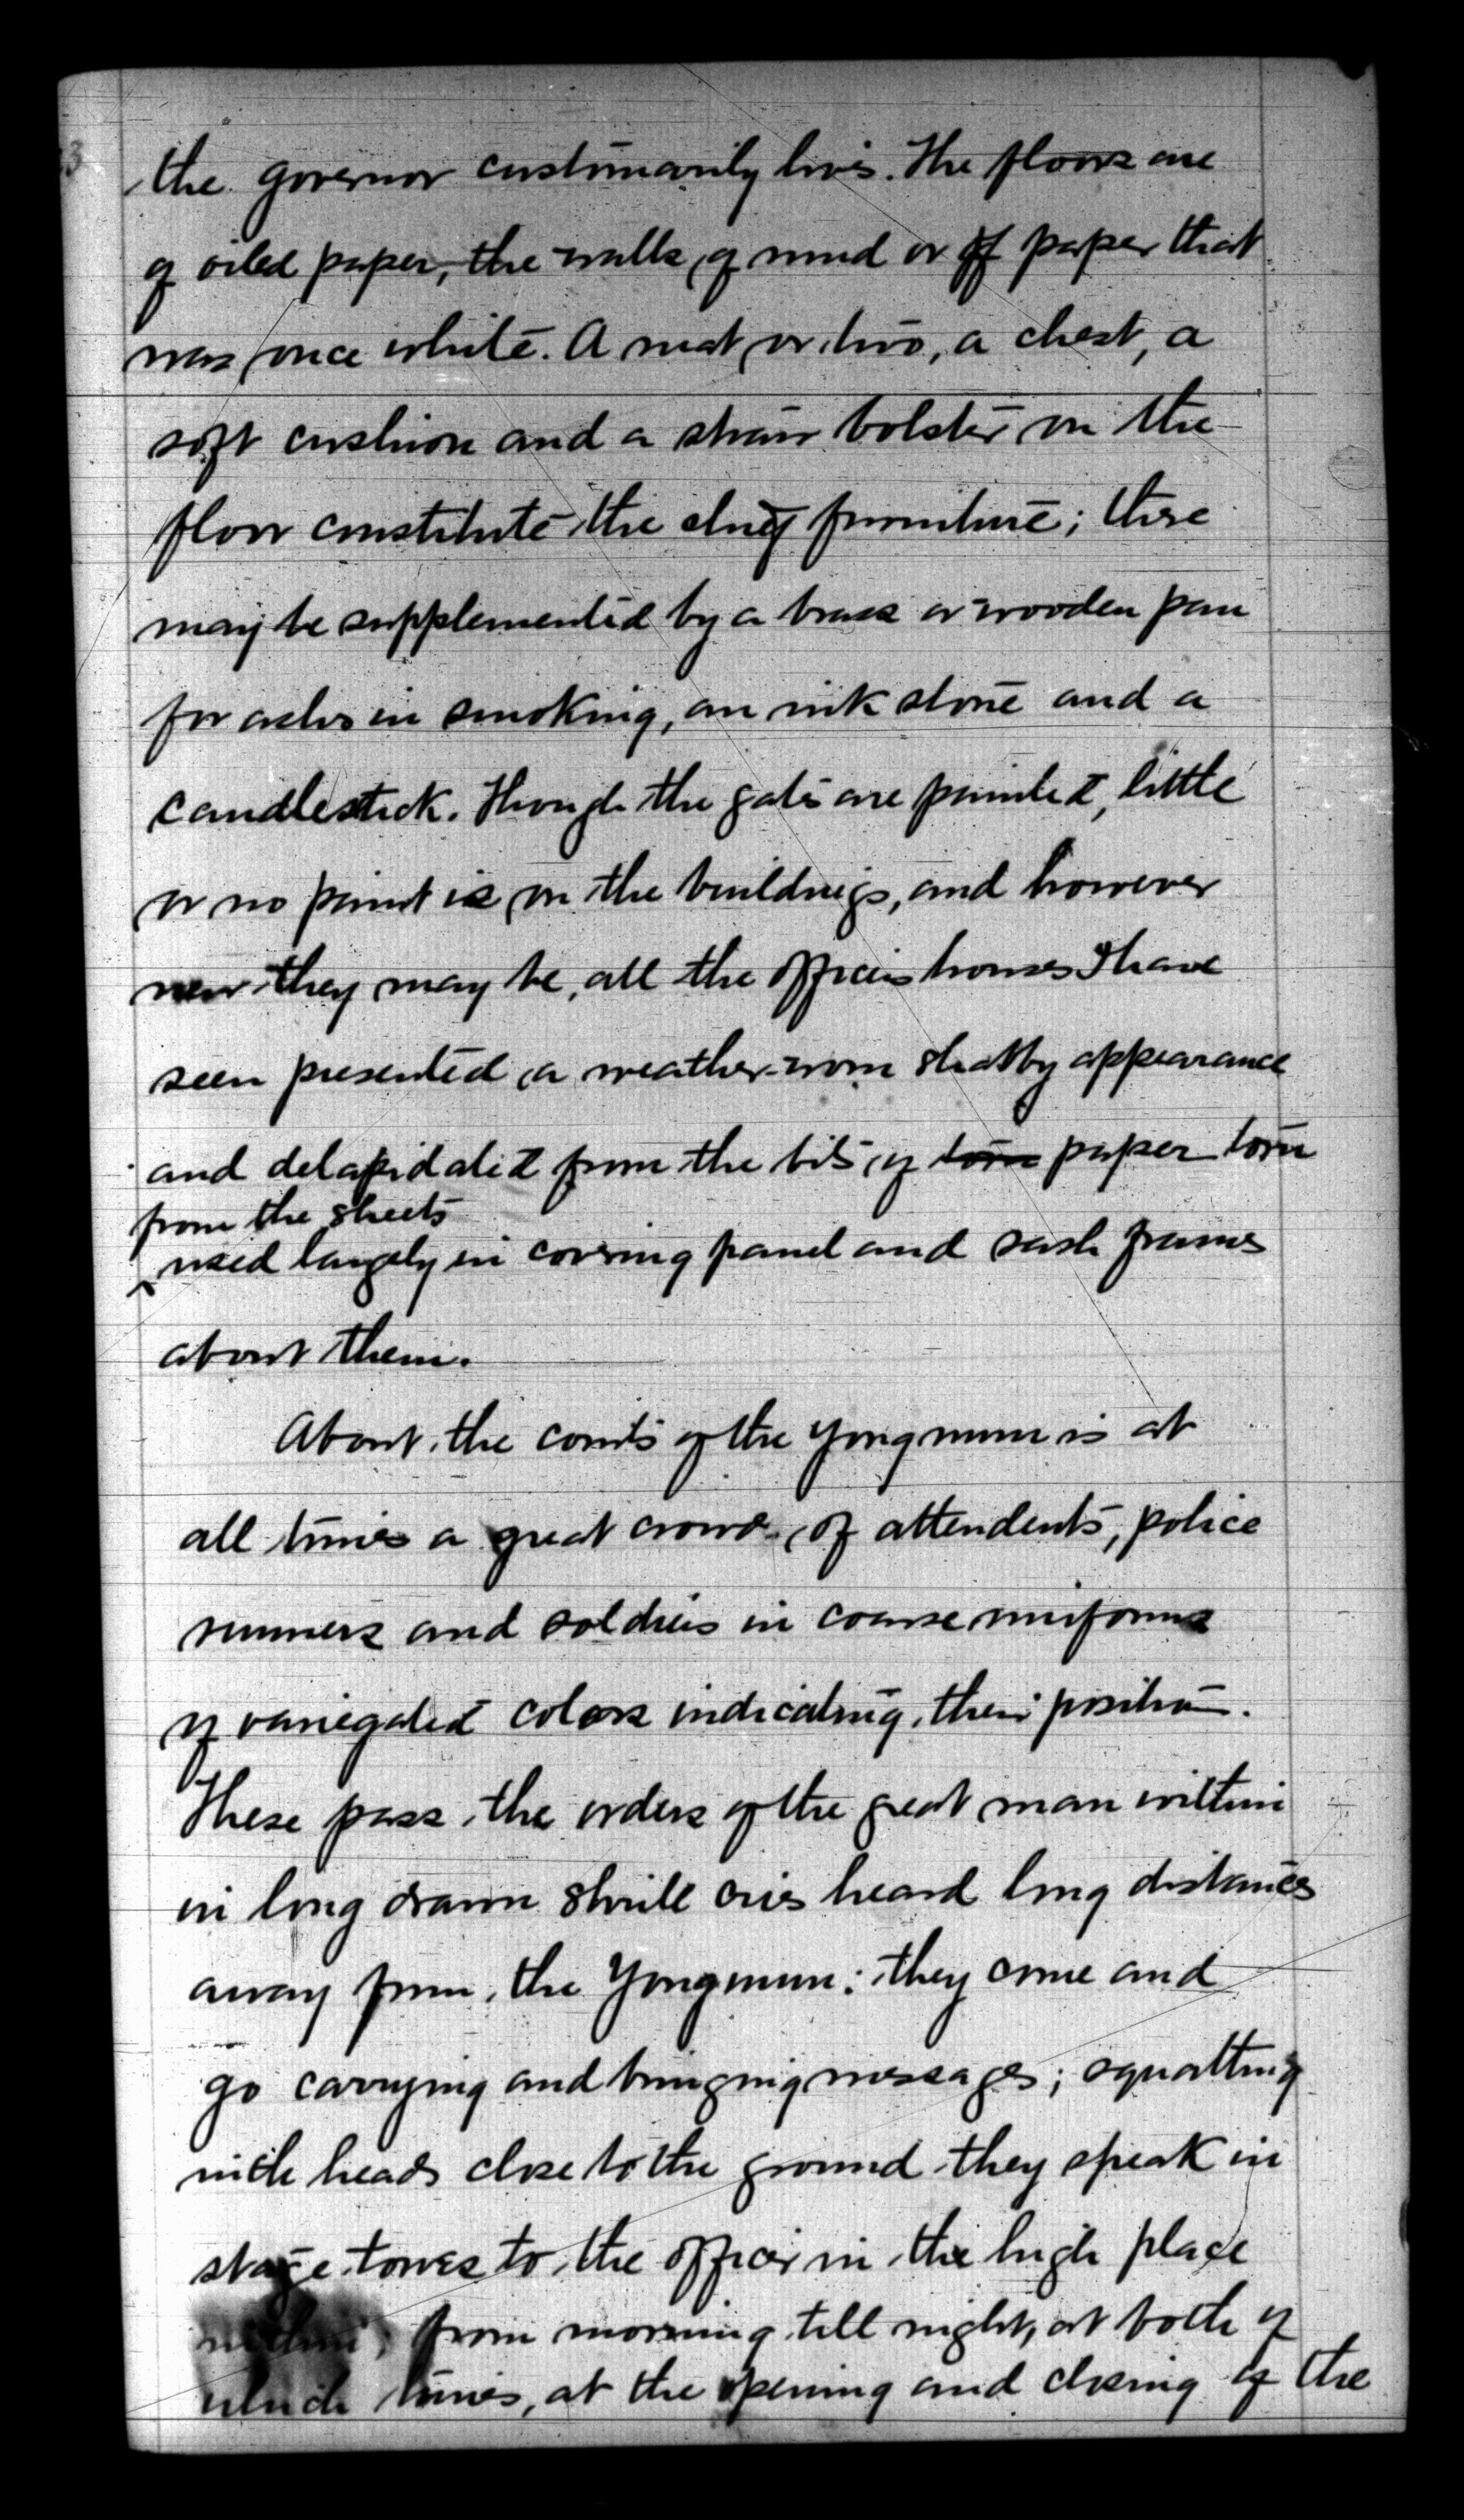 the governor customarily lives. The floors are
of oiled paper, the walls of mud or of paper that
was once white. A mat or two, a chest, a
soft cushion and a straw bolster on the
floor constitute the chief furniture; these
may be supplemented by a brass or wooden pan
for ashes in smoking, an ink stone and a
candlestick. Though the gates are painted, little
or no paint is on the buildings, and however
new they may be, all the officers houses I have
seen presented a weather-worn shabby appearance
and delapidated from the bits of torn paper torn
from the sheets
used largely in covering panel and sash frames
about them.
About the courts of the Yongmun is at
all times a great crowd of attendents, police
runners and soldiers in coarse uniforms
of variegated colors indicating their position.
These pass the orders of the great man within
in long drawn shrill cries heard long distances
away from the Yongmun: they come and
go carrying and bringing messages; squatting
with heads close to the ground they speak in
stage tones to the officer in the high place
within; from morning till night, at both of
which times, at the opening and closing of the